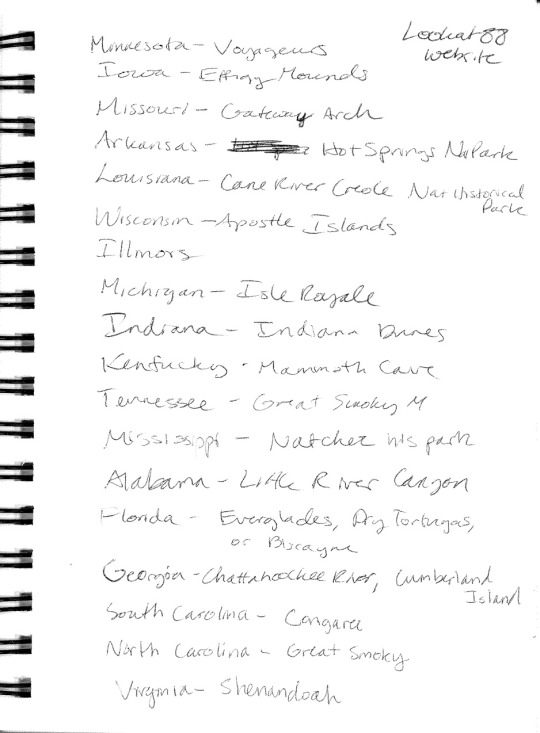 Look at 88
website
Minnesota - Voyageurs
Iowa - Effigy Mounds
Missouri - Gateway Arch
Arkansas - Hot Springs Na Park
Louisiana - Cane River Creole Nat Historical
Park
Wisconsin - Apostle Islands
Illinois
Michigan - Isle Royale
Indiana - Indiana Dunes
Kentucky - Mammoth Cave
Tennessee - Great Smoky M
Mississippi - Natchez his park
Alabama - Little River Canyon
Florida - Everglades, Dry Tortugas,
or Biscayne
Georgia - Chattahoochee River, Cumberland
Island
South Carolina - Congaree
North Carolina - Great Smoky
Virginia - Shenandoah